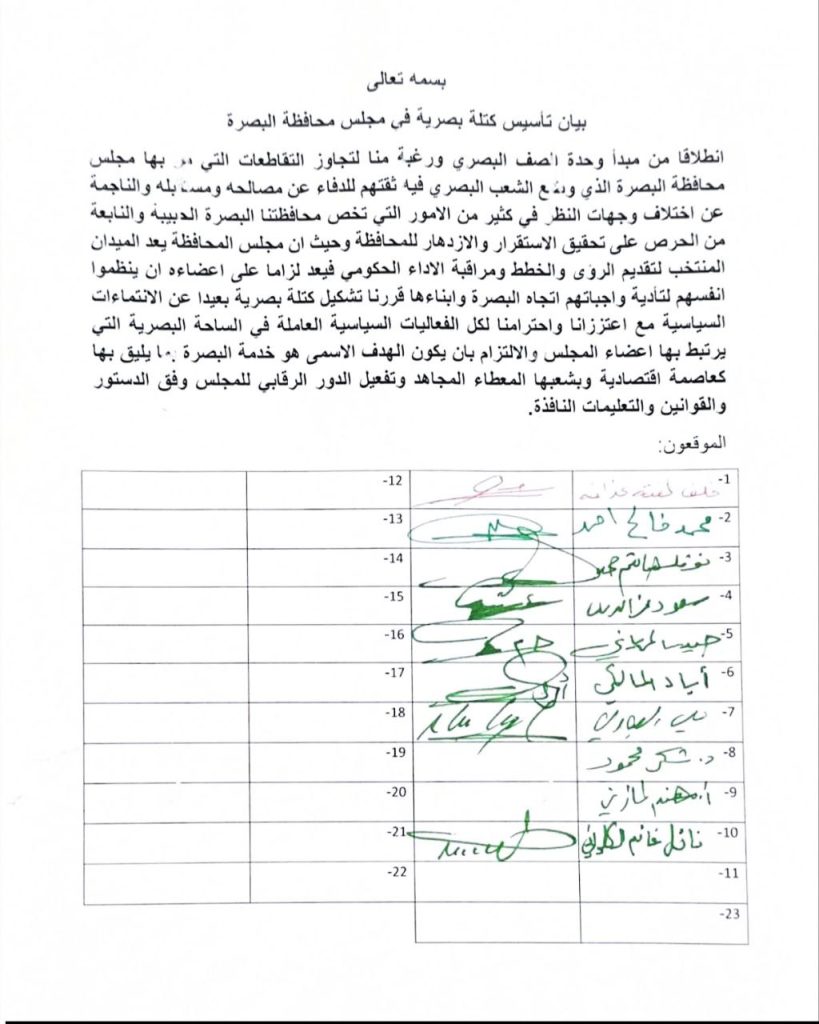 بسمه تعالى
بيان تأسيس كتلة بصرية في مجلس محافظة البصرة
انطلاقا من مبدأ وحدة الصف البصري ورغبة منا لتجاوز التقاطعات التي بها مجلس
محافظة البصرة الذي وضع الشعب البصري فيه ثقتهم للدفاع عن مصالحه ومستقبله والناجمة
عن اختلاف وجهات النظر في كثير من الامور التي تخص محافظتنا البصرة الحبيبة والنابعة
من الحرص على تحقيق الاستقرار والازدهار للمحافظة وحيث ان مجلس المحافظة يعد الميدان
المنتخب لتقديم الرؤى والخطط ومراقبة الاداء الحكومي فيعد لزاما على اعضاءه ان ينظموا
انفسهم لتأدية واجباتهم اتجاه البصرة وابناءها قررنا تشكيل كتلة بصرية بعيدا عن الانتماءات
السياسية مع اعتزازنا واحترامنا لكل الفعاليات السياسية العاملة في الساحة البصرية التي
يرتبط بها اعضاء المجلس والالتزام بان يكون الهدف الاسمى هو خدمة البصرة بما يليق بها
كعاصمة اقتصادية وبشعبها المعطاء المجاهد وتفعيل الدور الرقابي للمجلس وفق الدستور
والقوانين والتعليمات النافذة.
الموقعون:
1-
12-
2- محمد فالح احمد
13-
3-
14-
4- سعود عز الدين
15-
5-
16-
6- أياد المالكي
17-
7- علي العبادي
18-
8- د. شكر محمود
19-
9- أ. مهند المازني
20-
10- نائل غانم
21-
11-
22-
23-